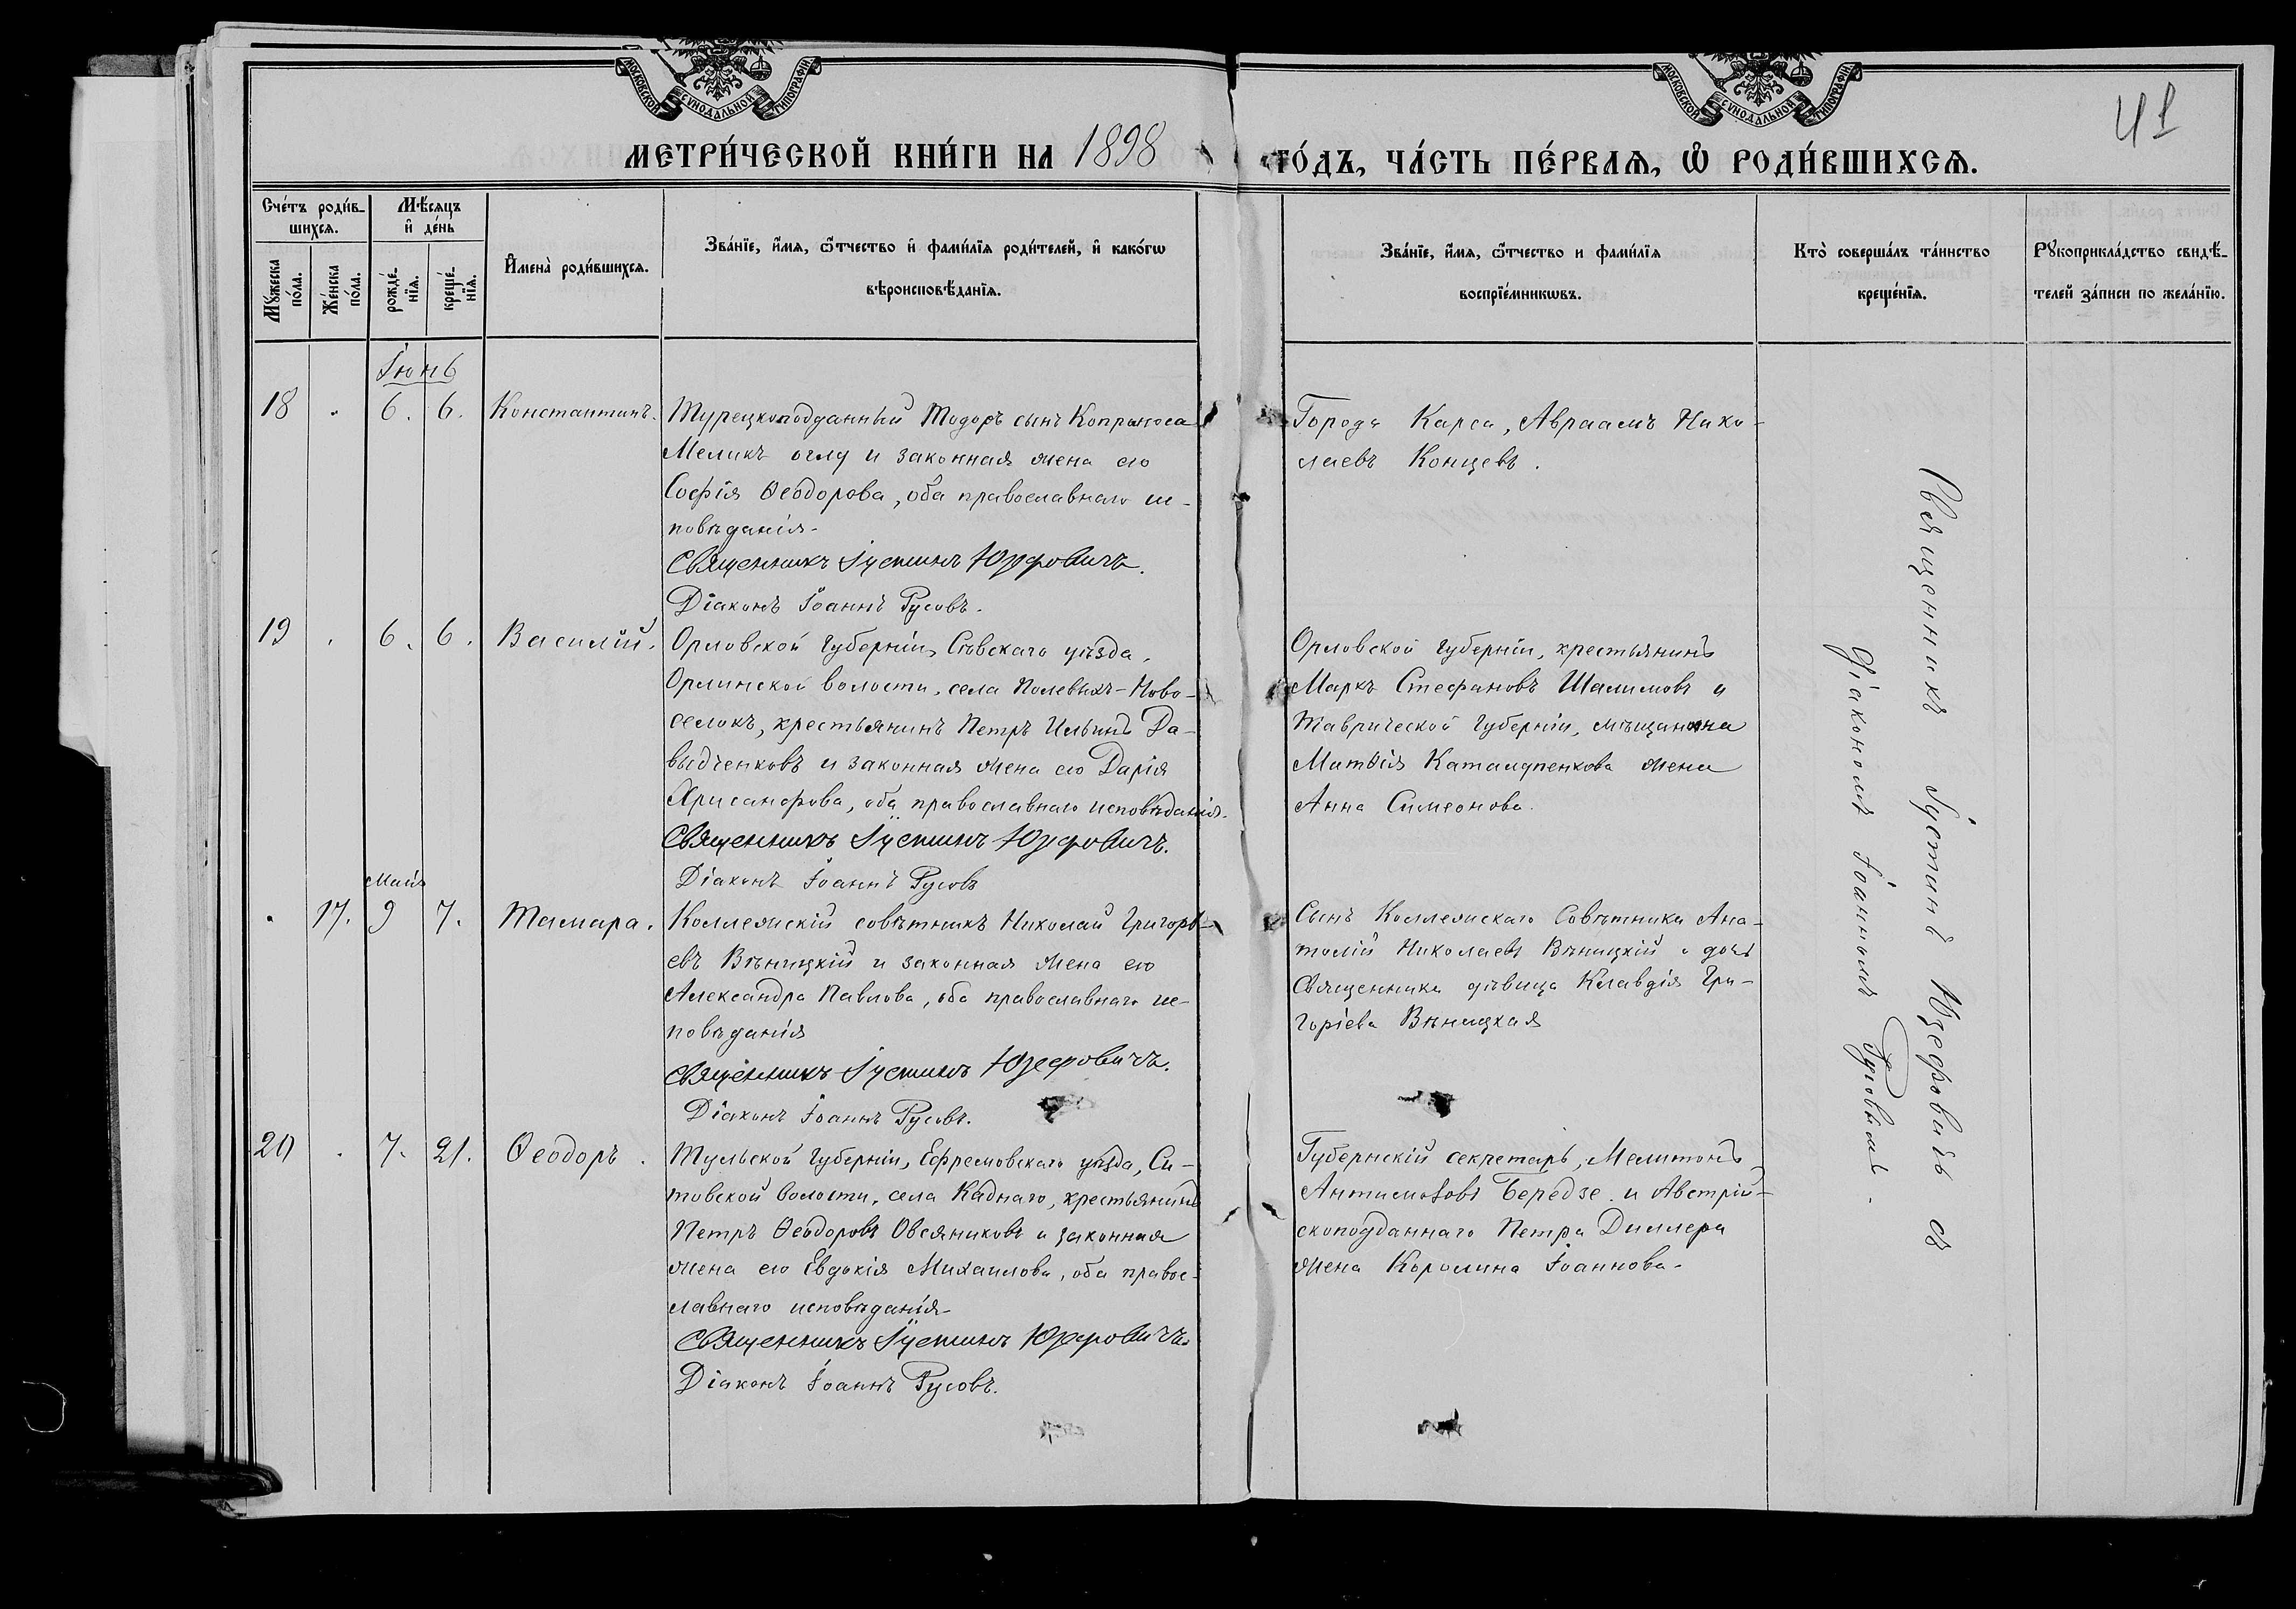 МОСКОВСКОЙ СѴНОДАЛЬНОЙ ТИПОГРАФІИ
МОСКОВСКОЙ СѴНОДАЛЬНОЙ ТИПОГРАФІИ
41
МЕТРИ́ЧЕСКОЙ КНИ́ГИ НА 1898 ГО́ДЪ, ЧА́СТЬ ПЕ́РВАѦ, Ѽ РОДИ́ВШИХСѦ.
Сче́тъ роди́в-
шихсѧ.
Мꙋ́жеска по́ла.
Же́нска по́ла.
Мѣ́сяцъ
и҆ де́нь
рожде́-
нїѧ.
креще́-
нїѧ.
И҆мена̀ роди́вшихсѧ.
Зва́нїе, и҆́мѧ, ѻ҆́тчество и҆ фами́лїѧ роди́телей, и҆ како́гѡ
вѣроисповѣ́данїѧ.
Зва́нїе, и҆́мѧ, ѻ҆́тчество и фами́лїѧ
воспрїе́мникѡвъ.
Кто̀ соверша́лъ та́инство
креще́нїѧ.
Рꙋкоприкла́дство свидѣ́-
телей за́писи по жела́нїю.
Іюнь
18 . 6. 6. Константинъ.
Турецкоподданный Тодоръ сынъ Копраноса
Меликъ оглу и законная жена его
Софія Ѳеодорова, оба православнаго ис-
повѣданія.
Священникъ Іустинъ Юзефовичъ.
Діаконъ Іоаннъ Русовъ.
Города Карса, Авраамъ Нико-
лаевъ Концевъ.
19 . 6. 6. Василій.
Орловской губерніи, Сѣвскаго уѣзда,
Орлинской волости, села Полевыхъ-Ново-
селокъ, крестьянинъ Петръ Ильинъ Да-
выдченковъ и законная жена его Дарія
Хрисанфова, оба православнаго исповѣданія.
Священникъ Іустинъ Юзефовичъ.
Діаконъ Іоаннъ Русовъ
Орловской губерніи, крестьянинъ
Маркъ Стефановъ Шалимовъ и
Таврической губерніи, мѣщанина
Матвія жена
Анна Симеонова.
Май
. 17. 9 7. Тамара.
Коллежскій совѣтникъ Николай Григорь-
евъ Вѣницкій и законная жена его
Александра Павлова, оба православнаго ис-
повѣданія
Священникъ Іустинъ Юзефовичъ.
Діаконъ Іоаннъ Русовъ.
Сынъ Коллежскаго Совѣтника Ана-
толій Николаевъ Вѣницкій и дочь
Священника дѣвица Клавдія Гри-
горіева Вѣницкая
20 . 7. 21. Ѳеодоръ.
Тульской губерніи, Ефремовскаго уѣзда, Си-
товской волости, села Каднаго, крестьянинъ
Петръ Ѳеодоровъ Овсяниковъ и законная
жена его Евдокія Михаилова, оба правос-
лавнаго исповѣданія.
Священникъ Іустинъ Юзефовичъ.
Діаконъ Іоаннъ Русовъ.
Губернскій секретарь, Мелитонъ
Антимозовъ Беридзе и Австрій-
скоподданнаго Петра Диллера
жена Каролина Іоаннова.
Священникъ Іустинъ Юзефовичъ съ
Діакономъ Іоанномъ Русовымъ.